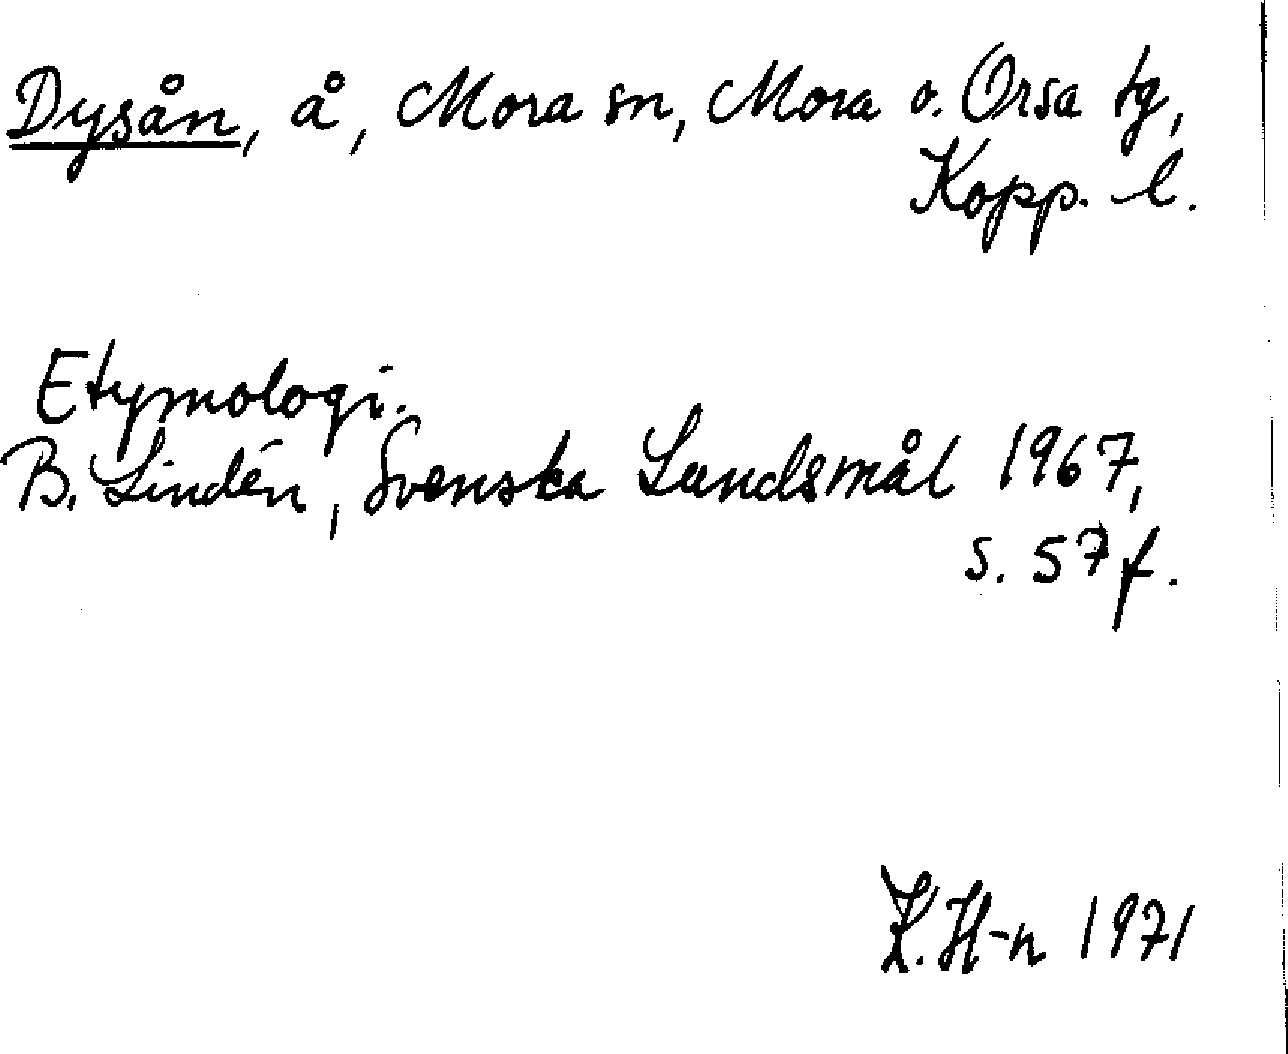 Dysån, å, Mora sn, Mora o. Orsa tg,
Kopp. l.
Etymologi.
B. Lindén, Svenska Landsmål 1967,
s. 57 f.
K. H-n 1971